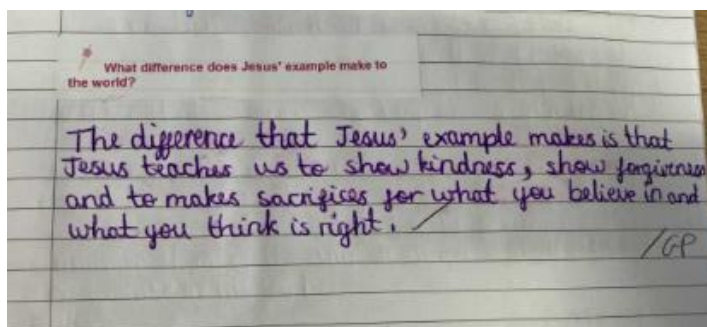 What difference does Jesus' example make to
the world?
The difference that Jesus' example makes is that
Jesus teaches us to show kindness, show forgiveness
and to makes sacrifices for what you believe in and
what you think is right.
/GP